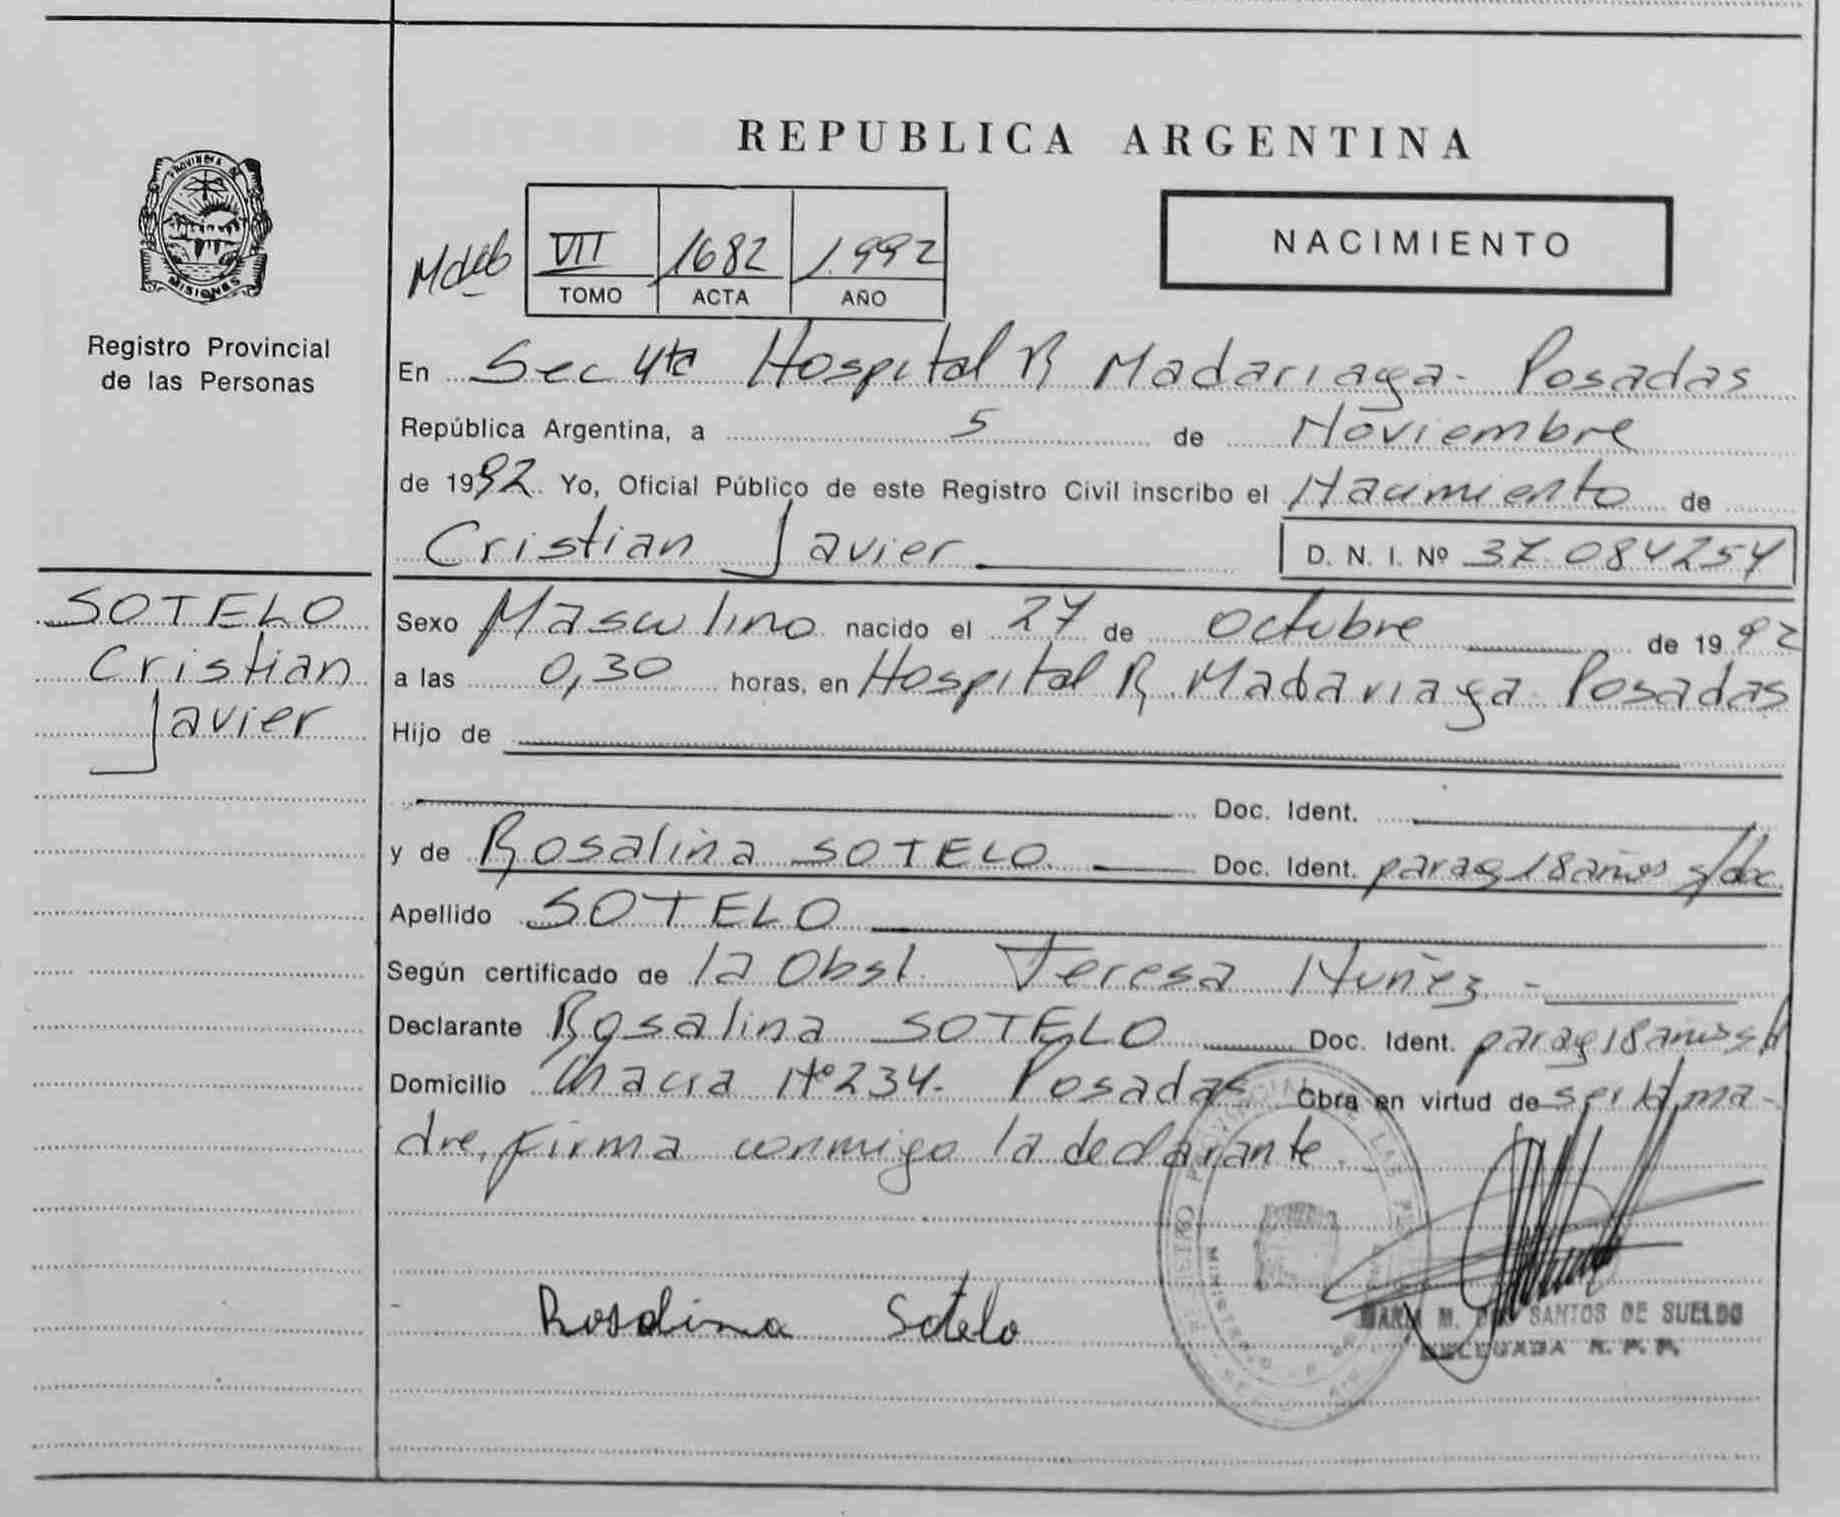 REPUBLICA ARGENTINA
PROVINCIA DE
MISIONES
Registro Provincial
de las Personas
VII 1682 1.992
TOMO ACTA AÑO
NACIMIENTO
En Sec 4ta Hospital R Madariaga- Posadas
República Argentina, a 5 de Noviembre
de 1992. Yo, Oficial Público de este Registro Civil inscribo el Nacimiento de
Cristian Javier D. N. I. Nº 37.084254
SOTELO
Cristian
Javier
Sexo Masculino nacido el 27 de octubre de 1992
a las 0,30 horas, en Hospital R. Madariaga Posadas
Hijo de
Doc. Ident.
y de Rosalina SOTELO. Doc. Ident. parag 18 años s/doc.
Apellido SOTELO
Según certificado de la Obst. Teresa Nuñez -
Declarante Rosalina SOTELO Doc. Ident. parag 18 años s/d
Domicilio Chacra Nº 234- Posadas Obra en virtud de ser la ma-
dre, firma conmigo la declarante.
Rosalina Sotelo
MARIA M. DOS SANTOS DE SUELDO
DELEGADA R. P. P.